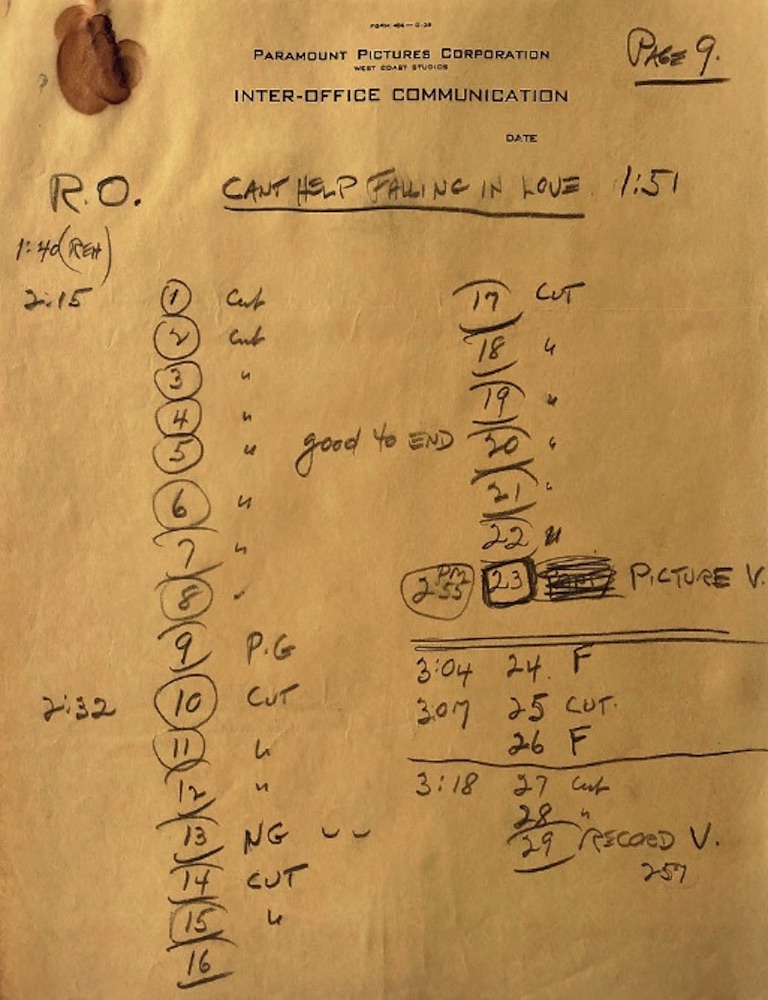 FORM 404 — 0-39
PARAMOUNT PICTURES CORPORATION
WEST COAST STUDIOS
INTER-OFFICE COMMUNICATION
PAGE 9.
DATE
R.O. CANT HELP FALLING IN LOVE 1:51
1:40 (REH)
2:15 1 Cut
2 Cut
3 "
4 "
5 "
6 "
7 "
8 "
9 P.G
2:32 10 CUT
11 "
12 "
13 NG ᴗ ᴗ
14 CUT
15 "
16
17 CUT
18 "
19 "
good to END 20 "
21 "
22 "
2:55 PM 23 PICTURE V.
3:04 24. F
3:07 25 CUT.
26 F
3:18 27 Cut
28 "
29 RECORD V.
257